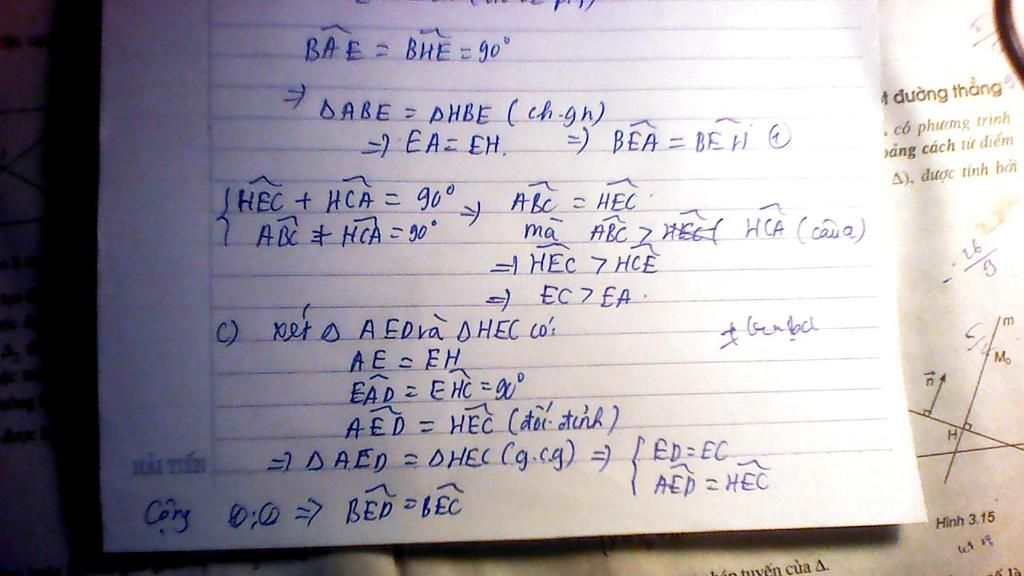 BAE = BHE = 90°
=> ΔABE = ΔHBE (ch-gn)
=> EA = EH. => BEA = BEH ①
HEC + HCA = 90° => ABC = HEC.
ABC + HCA = 90° mà ABC > HCA (câu a)
=> HEC > HCE
=> EC > EA.
c) xét Δ AED và ΔHEC có:
AE = EH
EAD = EHC = 90°
AED = HEC (đối đỉnh)
=> ΔAED = ΔHEC (g.c.g) => { ED = EC
AED = HEC
HẢI TIẾN
Cộng ①; ② => BED = BEC
t đường thẳng
, có phương trình
oảng cách từ điểm
Δ), được tính bởi
- 26/9
m
M₀
n
H
Hình 3.15
tuyến của Δ.